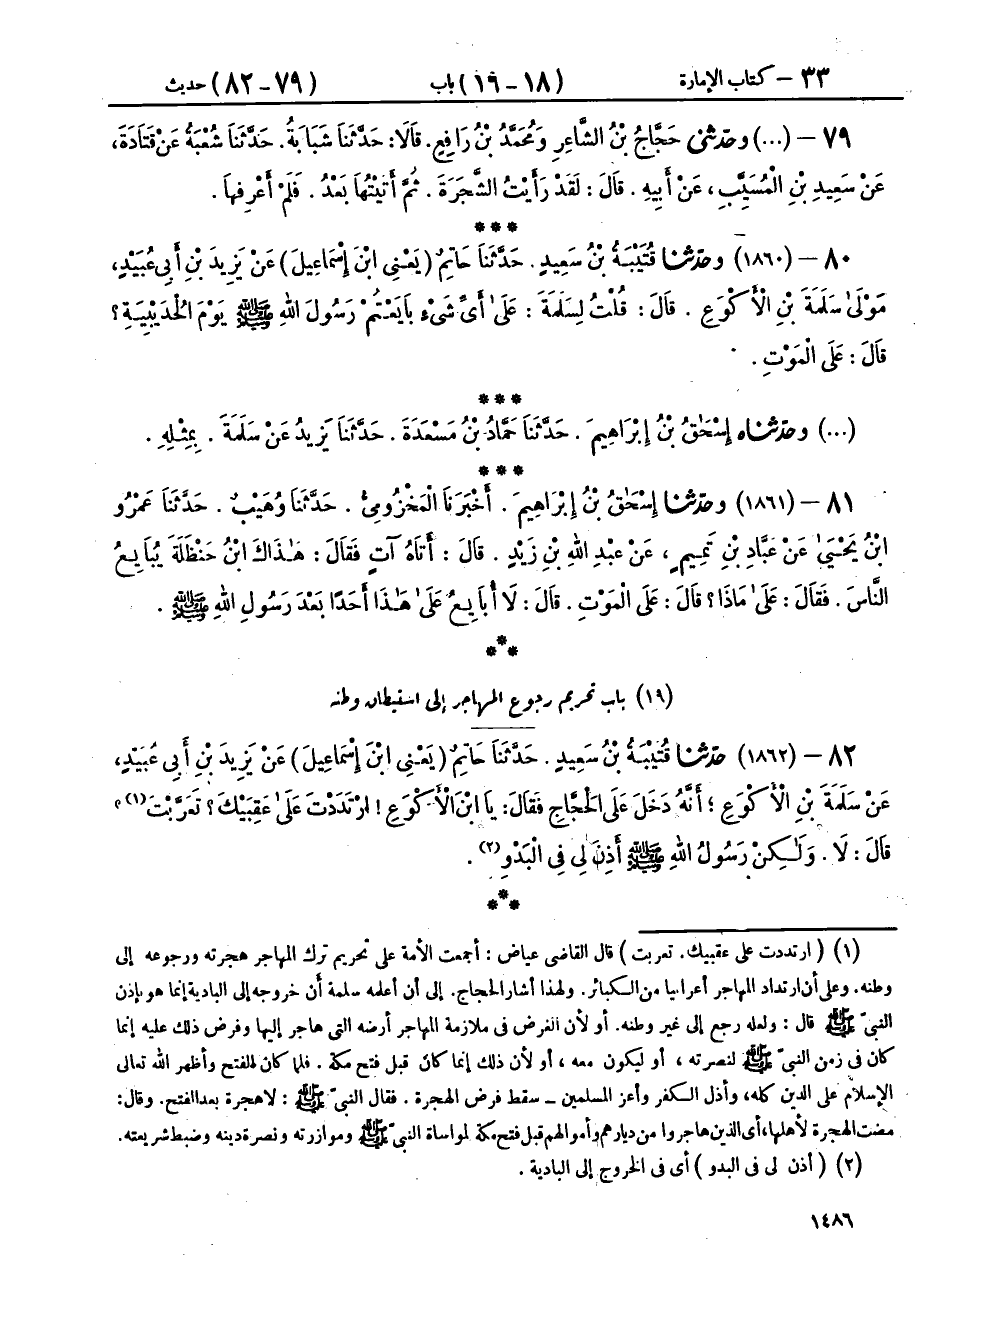 ٣٣ – كتاب الإمارة (١٨ – ١٩) باب (٧٩ – ٨٢) حديث
٧٩ – (...) وحدّثنى حَجَّاجُ بْنُ الشَّاعِرِ وَمُحَمَّدُ بْنُ رَافِعٍ. قَالَا: حَدَّثَنَا شَبَابَةُ. حَدَّثَنَا شُعْبَةُ عَنْ قَتَادَةَ،
عَنْ سَعِيدِ بْنِ الْمُسَيَّبِ، عَنْ أَبِيهِ. قَالَ: لَقَدْ رَأَيْتُ الشَّجَرَةَ. ثُمَّ أَتَيْتُهَا بَعْدُ. فَلَمْ أَعْرِفْهَا.
***
٨٠ – (١٨٦٠) وحدّثنا قُتَيْبَةُ بْنُ سَعِيدٍ. حَدَّثَنَا حَاتِمٌ (يَعْنِى ابْنَ إِسْمَاعِيلَ) عَنْ يَزِيدَ بْنِ أَبِى عُبَيْدٍ،
مَوْلَىٰ سَلَمَةَ بْنِ الْأَكْوَعِ. قَالَ: قُلْتُ لِسَلَمَةَ: عَلَىٰ أَىِّ شَىْءٍ بَايَعْتُمْ رَسُولَ اللهِ ﷺ يَوْمَ الْحُدَيْبِيَةِ؟
قَالَ: عَلَى الْمَوْتِ.
***
(...) وحدّثناه إِسْحَٰقُ بْنُ إِبْرَاهِيمَ. حَدَّثَنَا حَمَّادُ بْنُ مَسْعَدَةَ. حَدَّثَنَا يَزِيدُ عَنْ سَلَمَةَ. بِمِثْلِهِ.
***
٨١ – (١٨٦١) وحدّثنا إِسْحَٰقُ بْنُ إِبْرَاهِيمَ. أَخْبَرَنَا الْمَخْزُومِىُّ. حَدَّثَنَا وُهَيْبٌ. حَدَّثَنَا عَمْرُو
ابْنُ يَحْيَىٰ عَنْ عَبَّادِ بْنِ تَمِيمٍ، عَنْ عَبْدِ اللهِ بْنِ زَيْدٍ. قَالَ: أَتَاهُ آتٍ فَقَالَ: هَٰذَاكَ ابْنُ حَنْظَلَةَ يُبَايِعُ
النَّاسَ. فَقَالَ: عَلَىٰ مَاذَا؟ قَالَ: عَلَى الْمَوْتِ. قَالَ: لَا أُبَايِعُ عَلَىٰ هَٰذَا أَحَدًا بَعْدَ رَسُولِ اللهِ ﷺ.
***
(١٩) باب تحريم رجوع المهاجر إلى استيطان وطنه
٨٢ – (١٨٦٢) حدّثنا قُتَيْبَةُ بْنُ سَعِيدٍ. حَدَّثَنَا حَاتِمٌ (يَعْنِى ابْنَ إِسْمَاعِيلَ) عَنْ يَزِيدَ بْنِ أَبِى عُبَيْدٍ،
عَنْ سَلَمَةَ بْنِ الْأَكْوَعِ؛ أَنَّهُ دَخَلَ عَلَى الْحَجَّاجِ فَقَالَ: يَا ابْنَ الْأَكْوَعِ! ارْتَدَدْتَ عَلَىٰ عَقِبَيْكَ؟ تَعَرَّبْتَ(١)؟
قَالَ: لَا. وَلَٰكِنْ رَسُولُ اللهِ ﷺ أَذِنَ لِى فِى الْبَدْوِ(٢).
***
(١) (ارتددت على عقبيك. تعربت) قال القاضى عياض: أجمعت الأمة على تحريم ترك المهاجر هجرته ورجوعه إلى
وطنه. وعلى أن ارتداد المهاجر أعرابيا من الكبائر. ولهذا أشار الحجاج. إلى أن أعلمه سلمة أن خروجه إلى البادية إنما هو بإذن
النبىّ ﷺ قال: ولعله رجع إلى غير وطنه. أو لأن الغرض فى ملازمة المهاجر أرضه التى هاجر إليها وفرض ذلك عليه إنما
كان فى زمن النبىّ ﷺ لنصرته، أو ليكون معه، أو لأن ذلك إنما كان قبل فتح مكة. فلما كان الفتح وأظهر الله تعالى
الإسلام على الدين كله، وأذل الكفر وأعز المسلمين – سقط فرض الهجرة. فقال النبىّ ﷺ: لا هجرة بعد الفتح. وقال:
مضت الهجرة لأهلها، أى الذين هاجروا من ديارهم وأموالهم قبل فتح مكة لمواساة النبىّ ﷺ وموازرته ونصرة دينه وضبط شريعته.
(٢) (أذن لى فى البدو) أى فى الخروج إلى البادية.
١٤٨٦